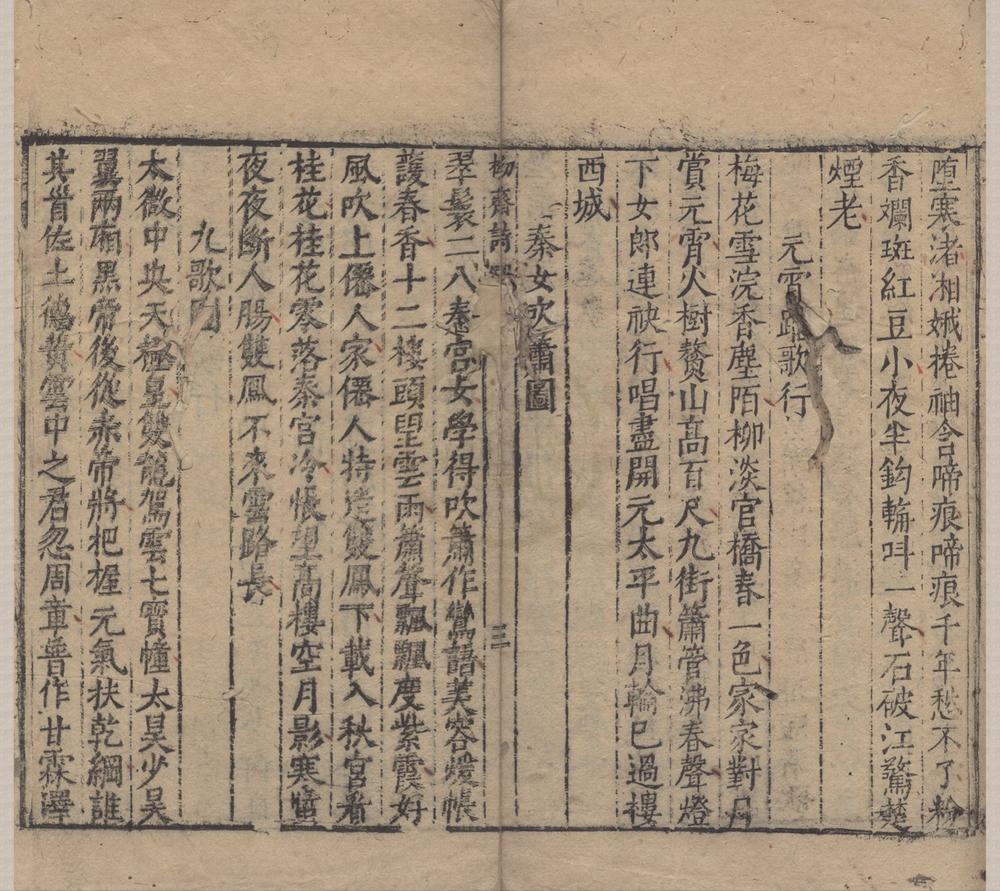 墮寒渚湘娥捲袖含啼痕啼痕千年愁不了粉
香斕斑紅豆小夜半鈎輈呌一聲石破江驚楚
煙老
元宵踏歌行
梅花雪浣香塵陌柳淡官橋春一色家家對月
賞元宵火樹鰲山髙百尺九街簫管沸春聲燈
下女郎連袂行唱盡開元太平曲月輪已過樓
西城
秦女吹簫圖
栁齋詩 三
翠鬟二八秦宫女學得吹簫作鸞語芙蓉煖帳
護春香十二樓頭望雲雨簫聲飄飄度紫霞好
風吹上僊人家僊人特遣雙鳳下載入秋宮看
桂花桂花零落秦宫冷悵望髙樓空月影寒螿
夜夜斷人腸雙鳳不來雲路長
九歌圖
太微中央天極皇雙龍駕雲七寳幢太昊少昊
翼兩廂黒帝後從赤帝將把握元氣扶乾綱誰
其首佐土德黄雲中之君忽周章普作甘霖澤